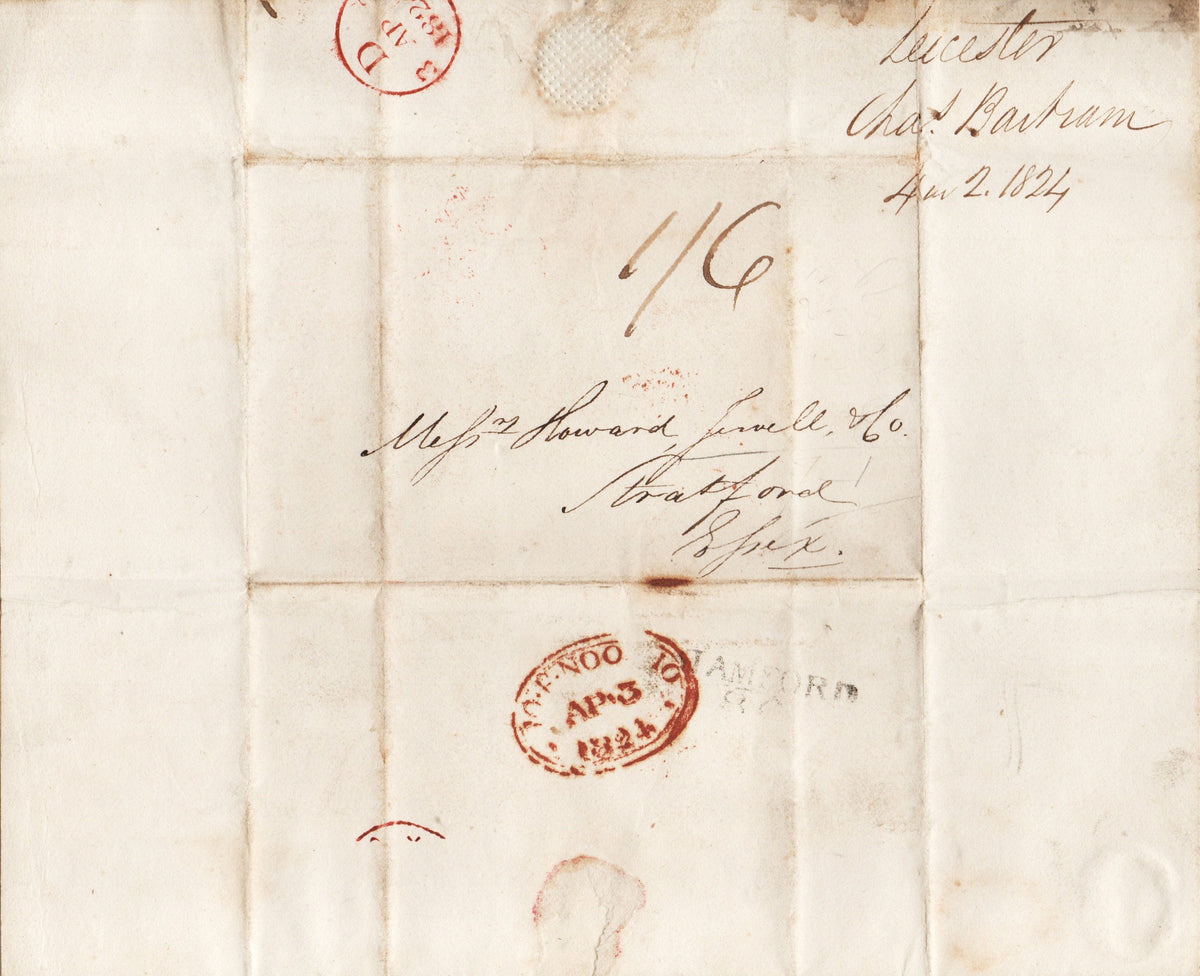 D
3
AP
182
Leicester
Chas. Bartram
2. 1824
1/6
Messrs Howard, Jewell, & Co.
Stratford
Essex.
10·F·NOON 10
AP·3
1824
STAMFORD